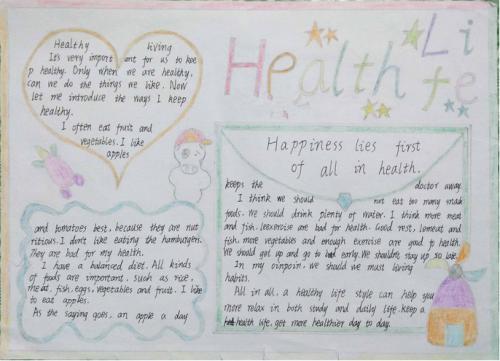 Health Life
Healthy living
It's very important for us to kee
p healthy. Only when we are healthy,
can we do the things we like. Now
let me introduce the ways I keep
healthy.
I often eat fruit and
vegetables. I like
apples
and tomatoes best, because they are nut
ritious. I don't like eating the hamburgers.
They are bad for my health.
I have a balanced diet. All kinds
of foods are important, such as rice,
meat, fish, eggs, vegetables and fruit. I like
to eat apples.
As the saying goes, an apple a day
Happiness lies first
of all in health.
keeps the doctor away.
I think we should not eat too many snack
foods. We should drink plenty of water. I think more meat
and fish, lessexercise are bad for health. Good rest, lemeat and
fish, more vegetables and enough exercise are good to health.
We should get up and go to bed early. We shouldn't stay up so late.
In my oinpoin, we should we must living
habits.
All in all, a healthy life style can help you
more relax in both study and daily life. keep a
health life, get more healthier day to day.